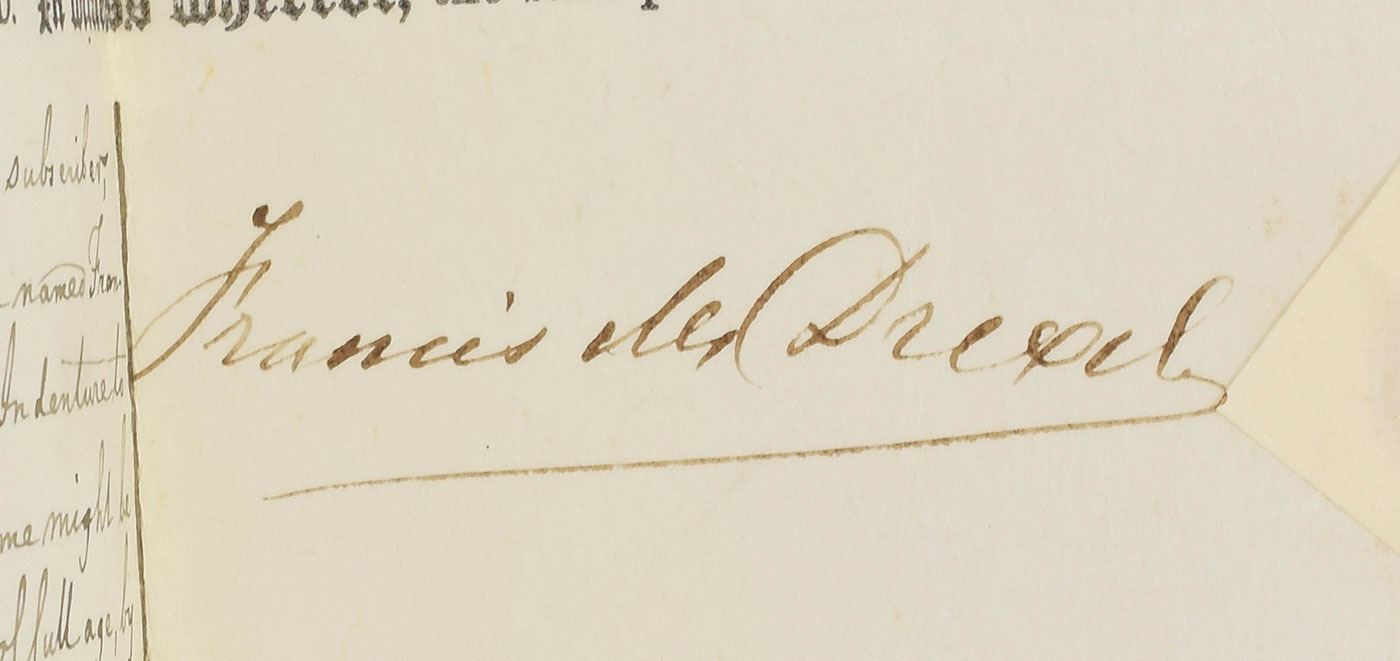 In witness whereof, the said
subscriber,
named Fran-
Indenture to
me might be
of full age, by
Francis Alex Drexel